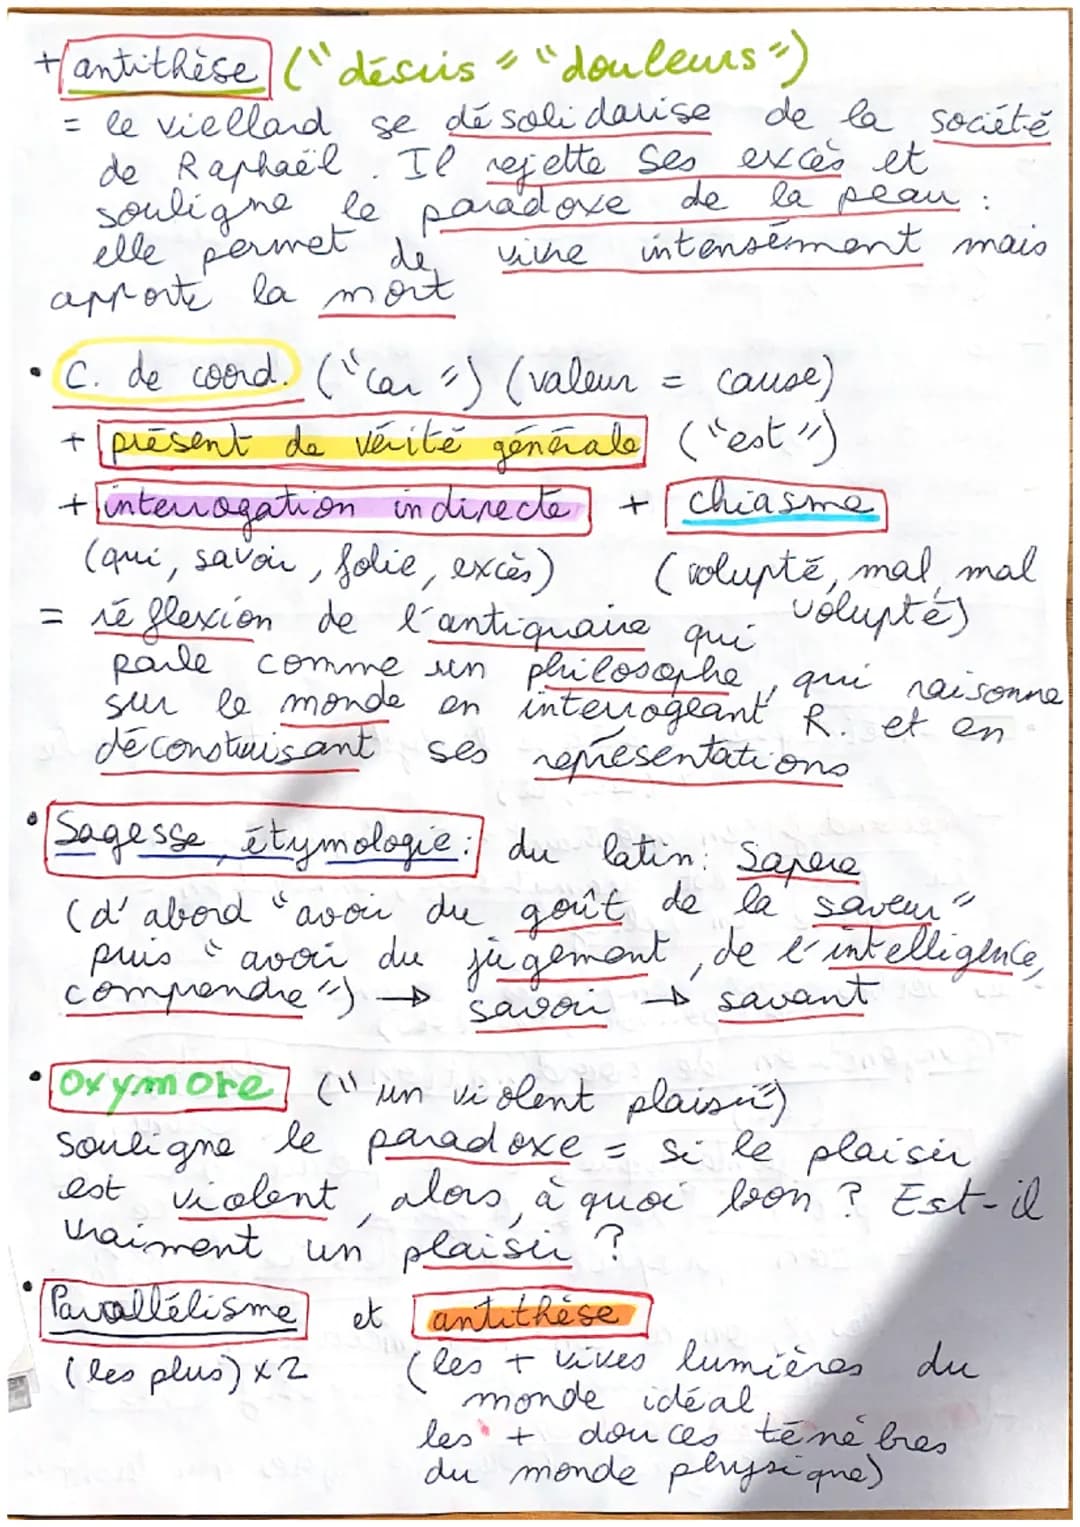 + antithèse ("désirs" "douleurs")
= le viellard se désolidarise de la société
de Raphaël. Il rejette ses excès et
souligne le paradoxe de la peau :
elle permet de vivre intensément mais
apporte la mort
• C. de coord. ("car") (valeur = cause)
+ présent de vérité générale ("est")
+ interrogation indirecte + chiasme
(qui, savoir, folie, excès) (volupté, mal, mal
volupté)
= réflexion de l'antiquaire qui
parle comme un philosophe, qui raisonne
sur le monde en interrogeant R. et en
déconstruisant ses représentations
• Sagesse, étymologie : du latin : Sapere
(d'abord "avoir du goût, de la saveur"
puis "avoir du jugement, de l'intelligence,
comprendre") → savoir → savant
• Oxymore ("un violent plaisir")
souligne le paradoxe = si le plaisir
est violent, alors, à quoi bon ? Est-il
vraiment un plaisir ?
• Parallélisme et antithèse
(les plus) x2 (les + vives lumières du
monde idéal
les + douces ténèbres
du monde physique)